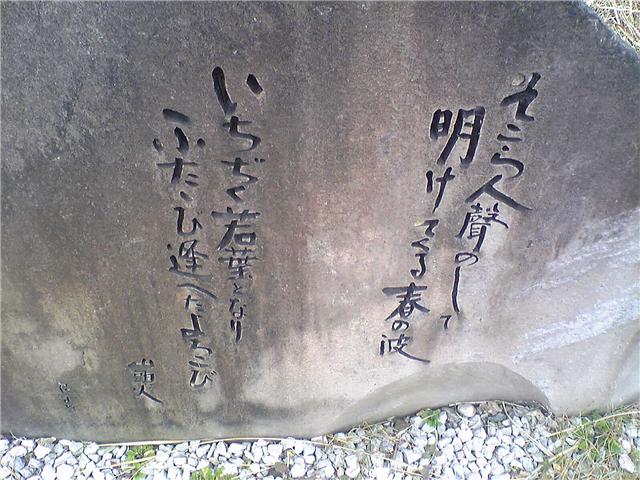 そこら人聲のして
明けてくる春の波
いちぢく若葉となり
ふたゝび逢へたよろこび